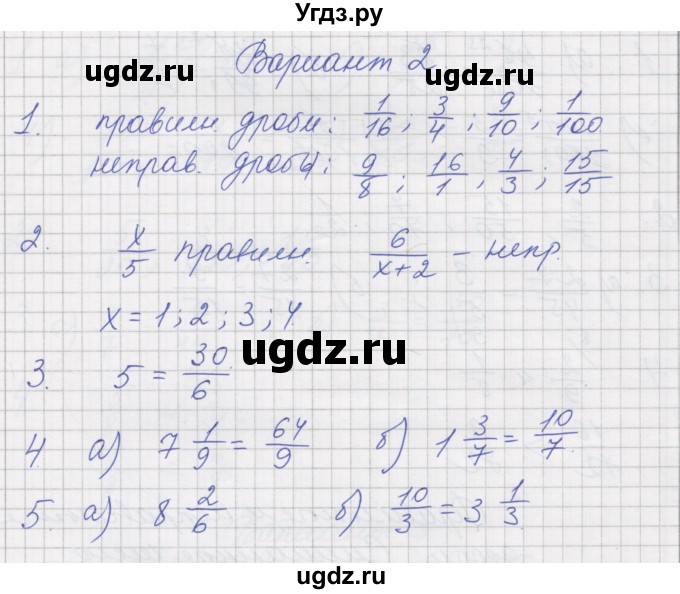 Угдз.ру
Вариант 2
ugdz.ru ugdz.ru
1. правильн. дроби: 1/16; 3/4; 9/10; 1/100
неправ. дроби: 9/8; 16/1, 4/3; 15/15
2. x/5 правильн. 6/(x+2) – непр.
x = 1; 2; 3; 4
ugdz.ru
3. 5 = 30/6
4. а) 7 1/9 = 64/9 б) 1 3/7 = 10/7.
5. а) 8 2/6 б) 10/3 = 3 1/3.
ugdz.ru ugdz.ru
ugdz.ru